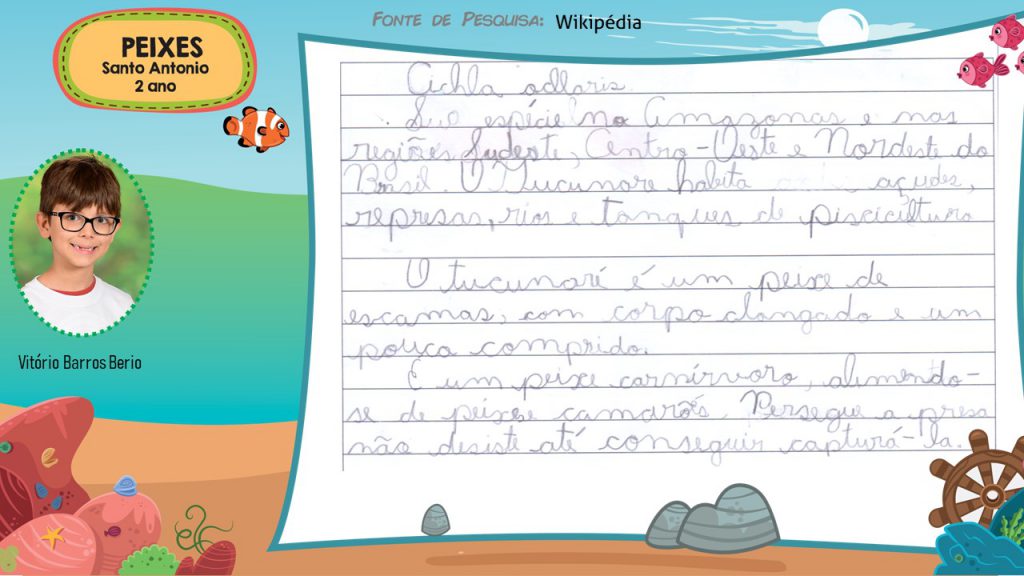 FONTE DE PESQUISA: Wikipédia
PEIXES
Santo Antonio
2 ano
Vitório Barros Berio
Cichla ocllaris.
Sua espécie na Amazonas e nas
regiões Sudeste, Centro-Oeste e Nordeste do
Brasil. O Tucunare habita açudes,
represas, rios e tanques de piscicultura
O tucunaré é um peixe de
escamas, com corpo alongado e um
pouca comprido.
É um peixe carnírvoro, alimendo-
se de peixes e camarões. Persegue a presa
não desiste até conseguir capturá-la.